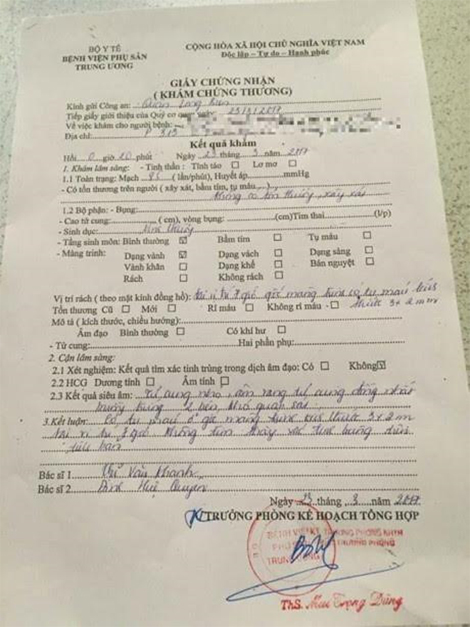 BỘ Y TẾ
BỆNH VIỆN PHỤ SẢN
TRUNG ƯƠNG
CỘNG HÒA XÃ HỘI CHỦ NGHĨA VIỆT NAM
Độc lập - Tự do - Hạnh phúc
GIẤY CHỨNG NHẬN
( KHÁM CHỨNG THƯƠNG)
Kính gửi Công an:
Tiếp giấy giới thiệu của Quý cơ quan ngày: 23/3/2017
Về việc khám cho người bệnh:
Địa chỉ:
Kết quả khám
Hồi 0 giờ 20 phút Ngày 23 tháng 3 năm 2017
1. Khám lâm sàng: - Tinh thần: Tỉnh táo Lơ mơ
1.1 Toàn trạng: Mạch (lần/phút), Huyết áp mmHg
- Có tổn thương trên người ( xây xát, bầm tím, tụ máu, ):
không có tổn thương, xây xát
1.2 Bộ phận: - Bụng:
- Cao tử cung: ( cm), vòng bụng: (cm)Tim thai (l/p)
- Sinh dục:
- Tầng sinh môn: Bình thường Bầm tím Tụ máu
- Màng trinh: Dạng vành Dạng vách Dạng sàng
Vành khăn Dạng khế Bán nguyệt
Rách Không rách
Vị trí rách ( theo mặt kính đồng hồ): gốc màng trinh có tụ máu kích thước 3x2mm
Tổn thương Cũ Mới Rỉ máu Không rỉ máu
Mô tả ( kích thước, chiều hướng):
Âm đạo Bình thường Có khí hư
- Tử cung: Hai phần phụ:
2. Cận lâm sàng:
2.1 Xét nghiệm: Kết quả tìm xác tinh trùng trong dịch âm đạo: Có Không
2.2 HCG Dương tính Âm tính
2.3 Kết quả siêu âm: tử cung âm vang tử cung đồng nhất
buồng trứng 2 bên khó quan sát
3.Kết luận: Có tụ máu ở gốc màng trinh kích thước 3x2m
không tìm thấy xác tinh trùng trên
tiêu bản
Bác sĩ 1
Bác sĩ 2
Ngày 23 tháng 3 năm 2017
TRƯỞNG PHÒNG KẾ HOẠCH TỔNG HỢP
ThS. Mai Trọng Dũng